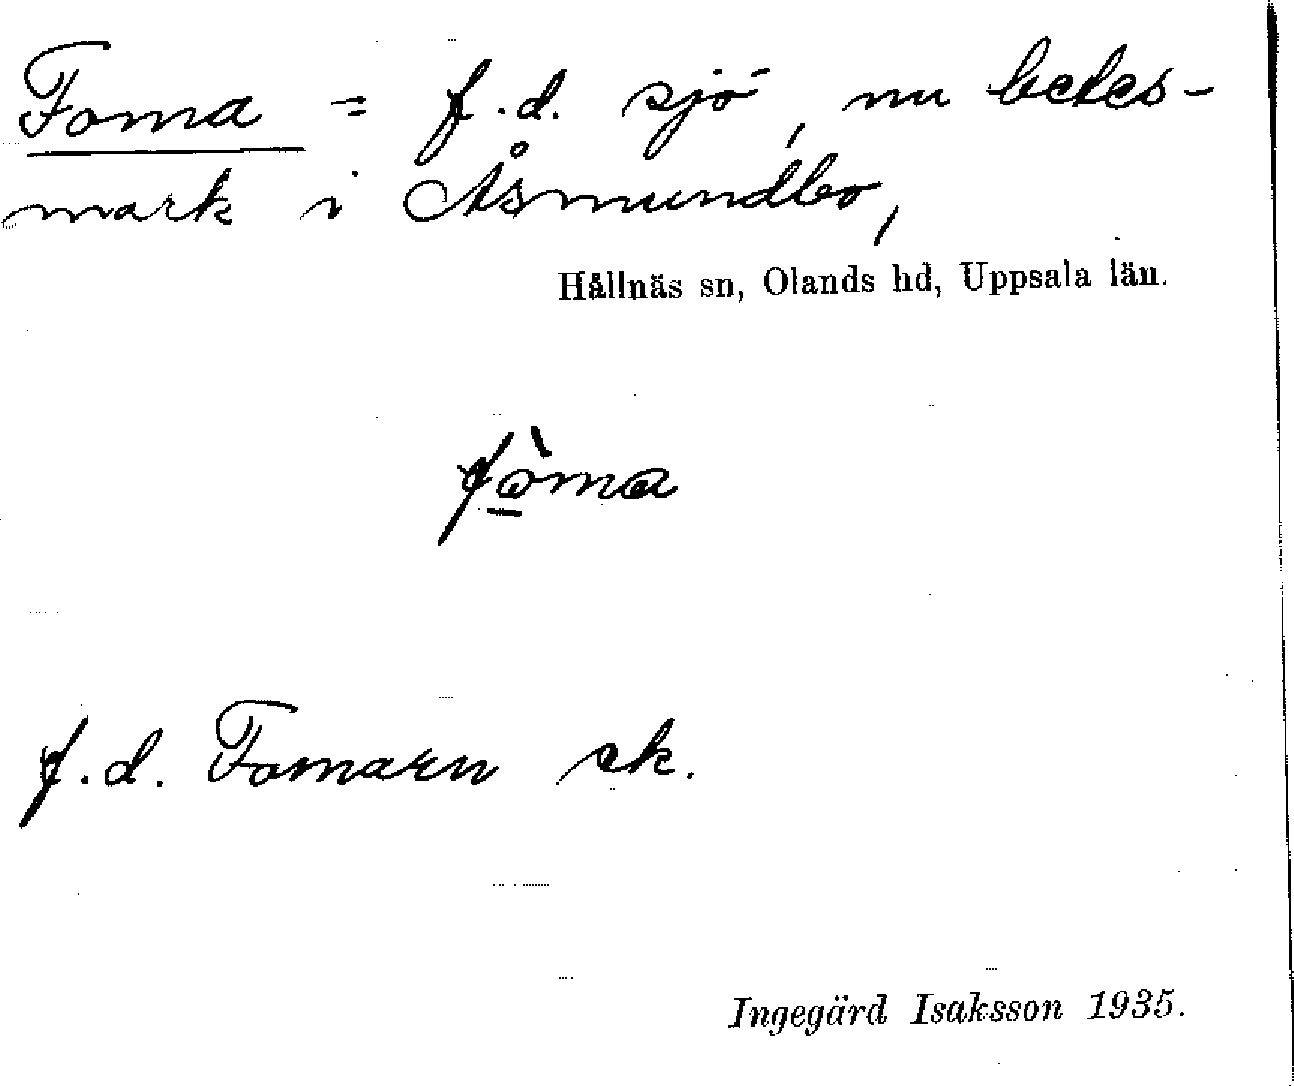 Foma = f.d. sjö, nu betes-
mark i Åsmundbo,
Hållnäs sn, Olands hd, Uppsala län.
fò̱̖ma
f.d. Fomaren ek.
Ingegärd Isaksson 1935.